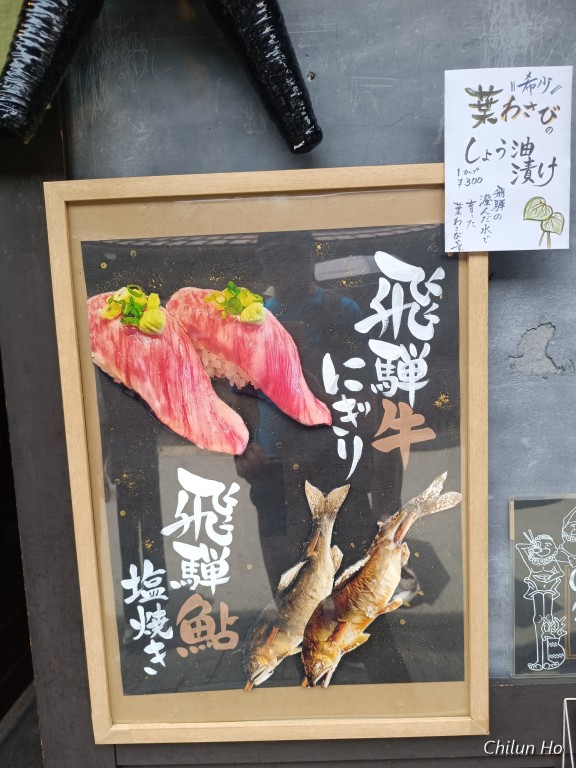 〃希少〃
葉わさびの
しょう油
漬け
1カップ
¥300
飛騨の
澄んだ水で
育った
葉わさびです
飛騨牛
にぎり
飛騨鮎
塩焼き
Chilun Ho